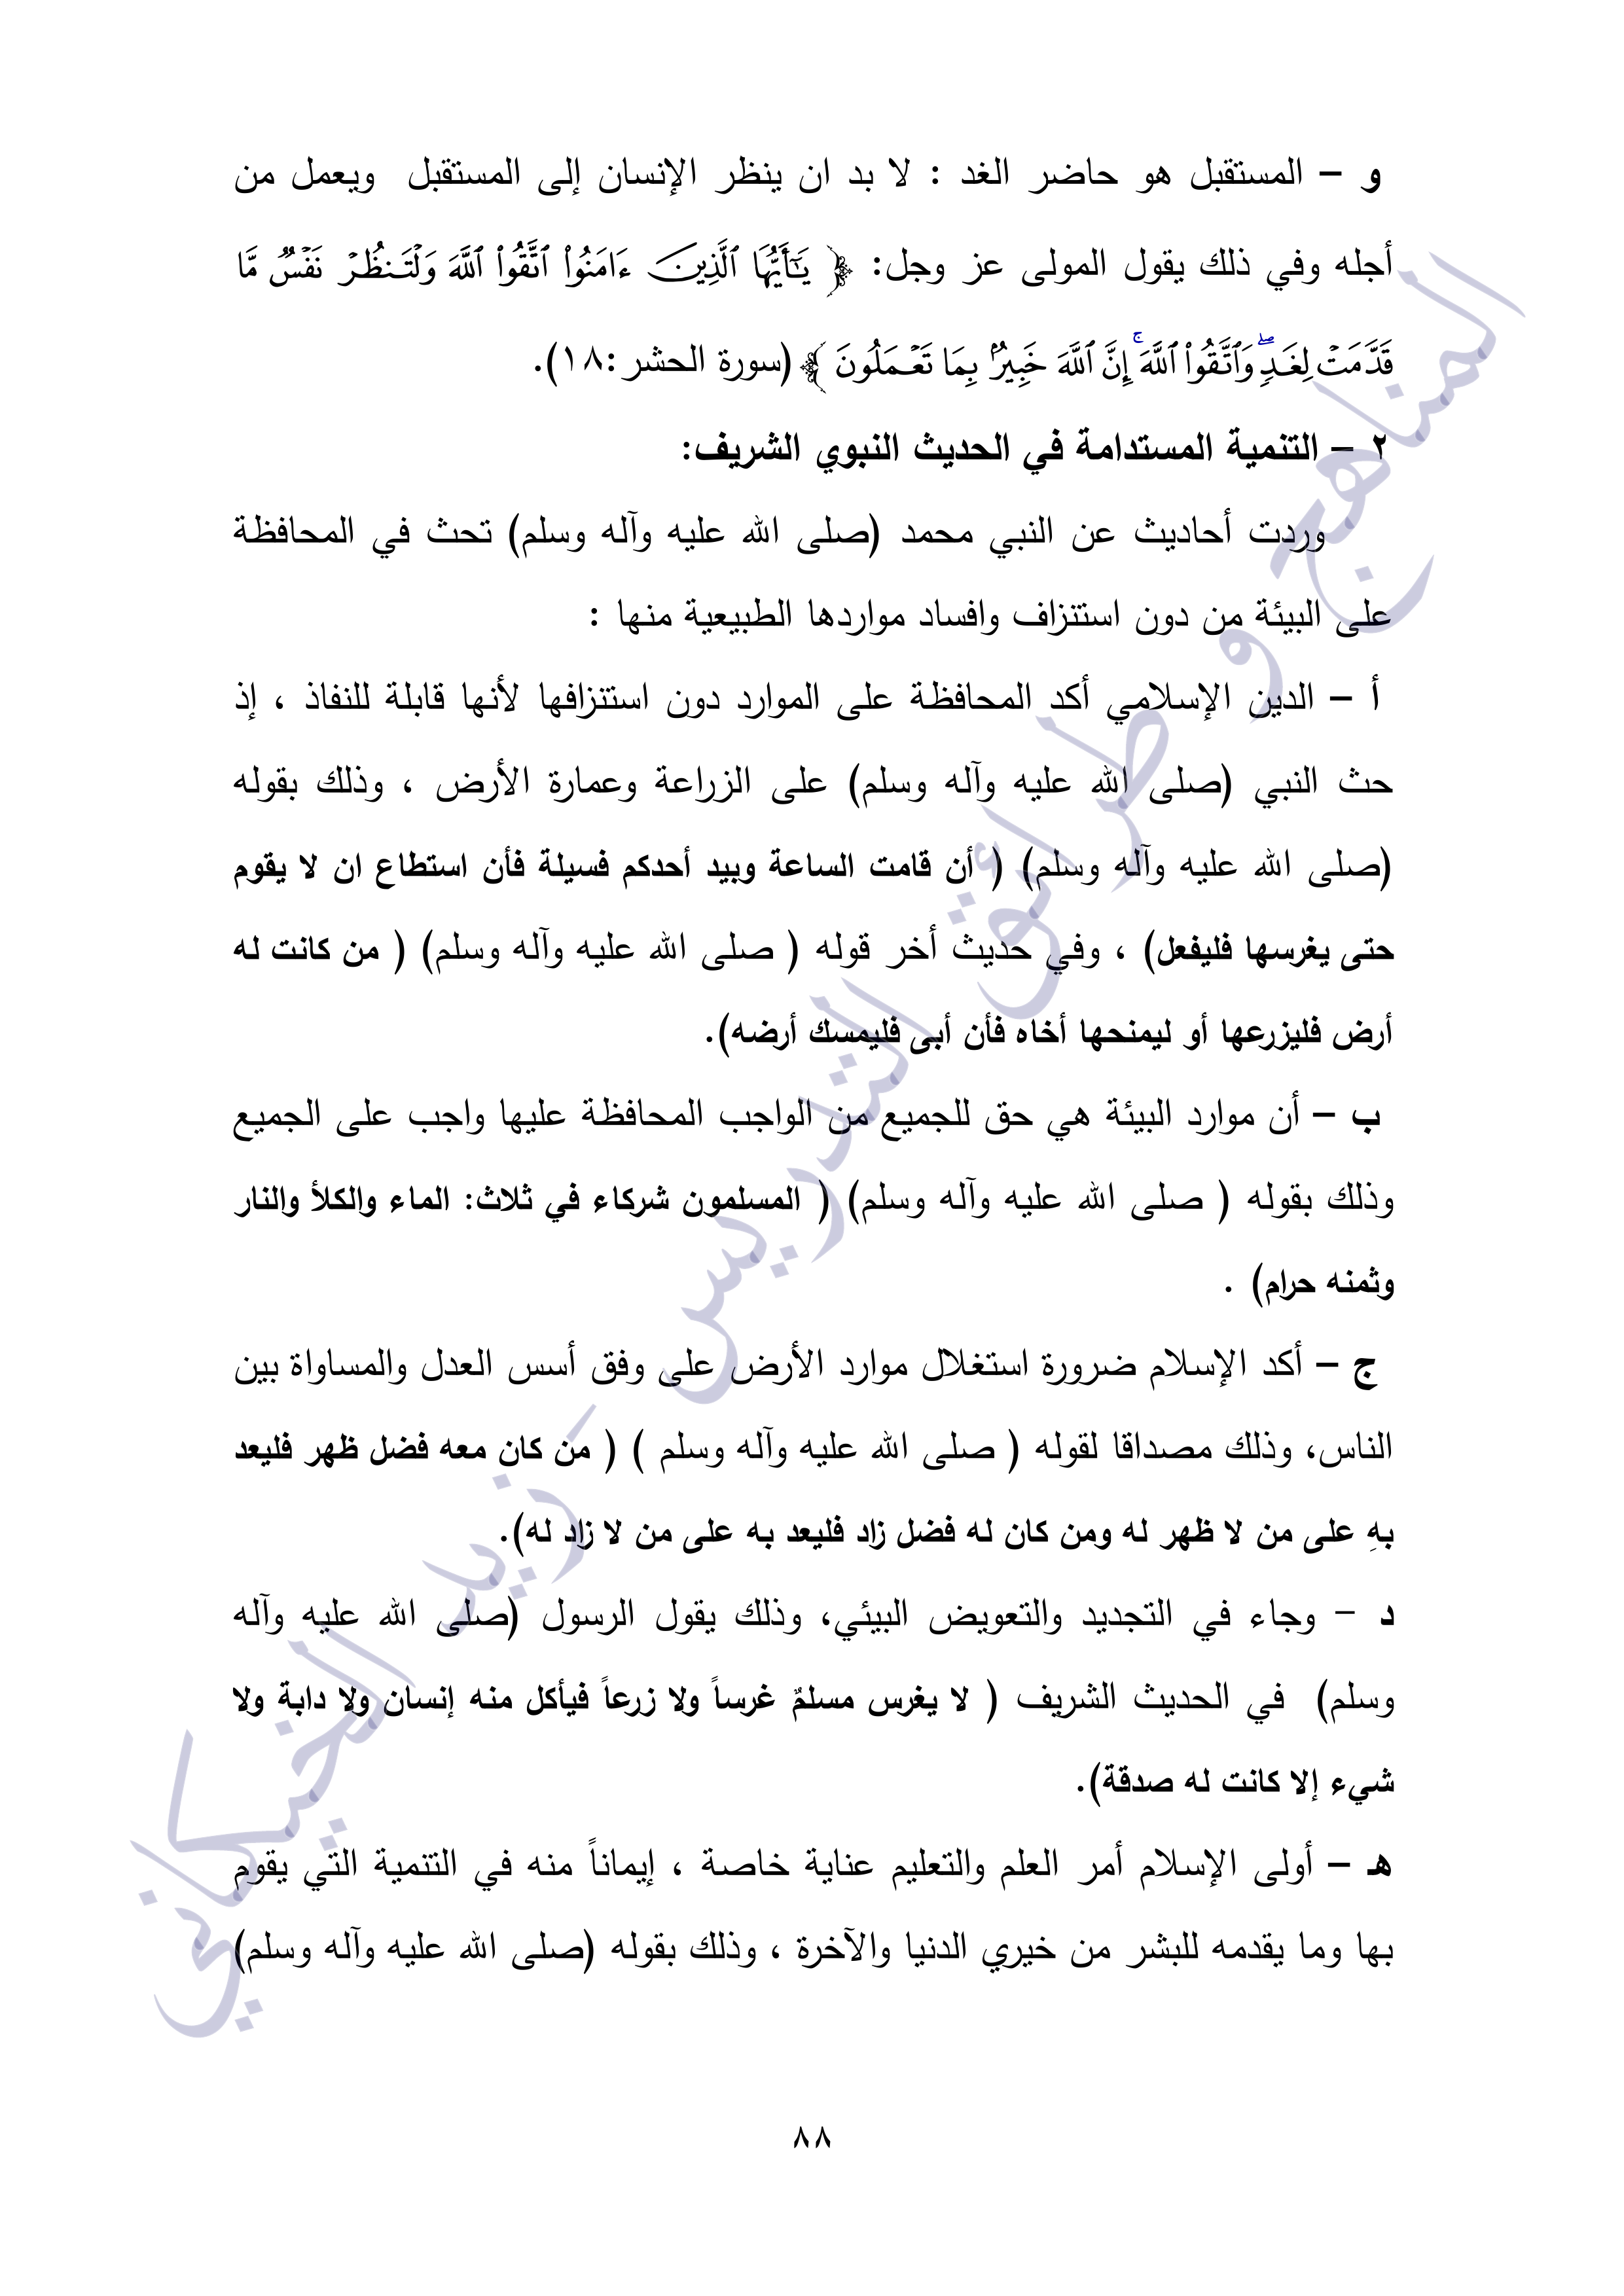 و – المستقبل هو حاضر الغد : لا بد ان ينظر الإنسان إلى المستقبل ويعمل من
أجله وفي ذلك يقول المولى عز وجل: ﴿ يَـٰٓأَيُّهَا ٱلَّذِينَ ءَامَنُوا۟ ٱتَّقُوا۟ ٱللَّهَ وَلْتَنظُرْ نَفْسٌ مَّا
قَدَّمَتْ لِغَدٍ ۖ وَٱتَّقُوا۟ ٱللَّهَ ۚ إِنَّ ٱللَّهَ خَبِيرٌۢ بِمَا تَعْمَلُونَ ﴾ (سورة الحشر :١٨).
٢ – التنمية المستدامة في الحديث النبوي الشريف:
وردت أحاديث عن النبي محمد (صلى الله عليه وآله وسلم) تحث في المحافظة
على البيئة من دون استنزاف وافساد مواردها الطبيعية منها :
أ – الدين الإسلامي أكد المحافظة على الموارد دون استنزافها لأنها قابلة للنفاذ ، إذ
حث النبي (صلى الله عليه وآله وسلم) على الزراعة وعمارة الأرض ، وذلك بقوله
(صلى الله عليه وآله وسلم) ( أن قامت الساعة وبيد أحدكم فسيلة فأن استطاع ان لا يقوم
حتى يغرسها فليفعل) ، وفي حديث أخر قوله ( صلى الله عليه وآله وسلم) ( من كانت له
أرض فليزرعها أو ليمنحها أخاه فأن أبى فليمسك أرضه).
ب – أن موارد البيئة هي حق للجميع من الواجب المحافظة عليها واجب على الجميع
وذلك بقوله ( صلى الله عليه وآله وسلم) ( المسلمون شركاء في ثلاث: الماء والكلأ والنار
وثمنه حرام) .
ج – أكد الإسلام ضرورة استغلال موارد الأرض على وفق أسس العدل والمساواة بين
الناس، وذلك مصداقا لقوله ( صلى الله عليه وآله وسلم ) ( من كان معه فضل ظهر فليعد
بهِ على من لا ظهر له ومن كان له فضل زاد فليعد به على من لا زاد له).
د – وجاء في التجديد والتعويض البيئي، وذلك يقول الرسول (صلى الله عليه وآله
وسلم) في الحديث الشريف ( لا يغرس مسلمٌ غرساً ولا زرعاً فيأكل منه إنسان ولا دابة ولا
شيء إلا كانت له صدقة).
هـ – أولى الإسلام أمر العلم والتعليم عناية خاصة ، إيماناً منه في التنمية التي يقوم
بها وما يقدمه للبشر من خيري الدنيا والآخرة ، وذلك بقوله (صلى الله عليه وآله وسلم)
٨٨
المناهج و طرائق التدريس - زيد الخيكاني